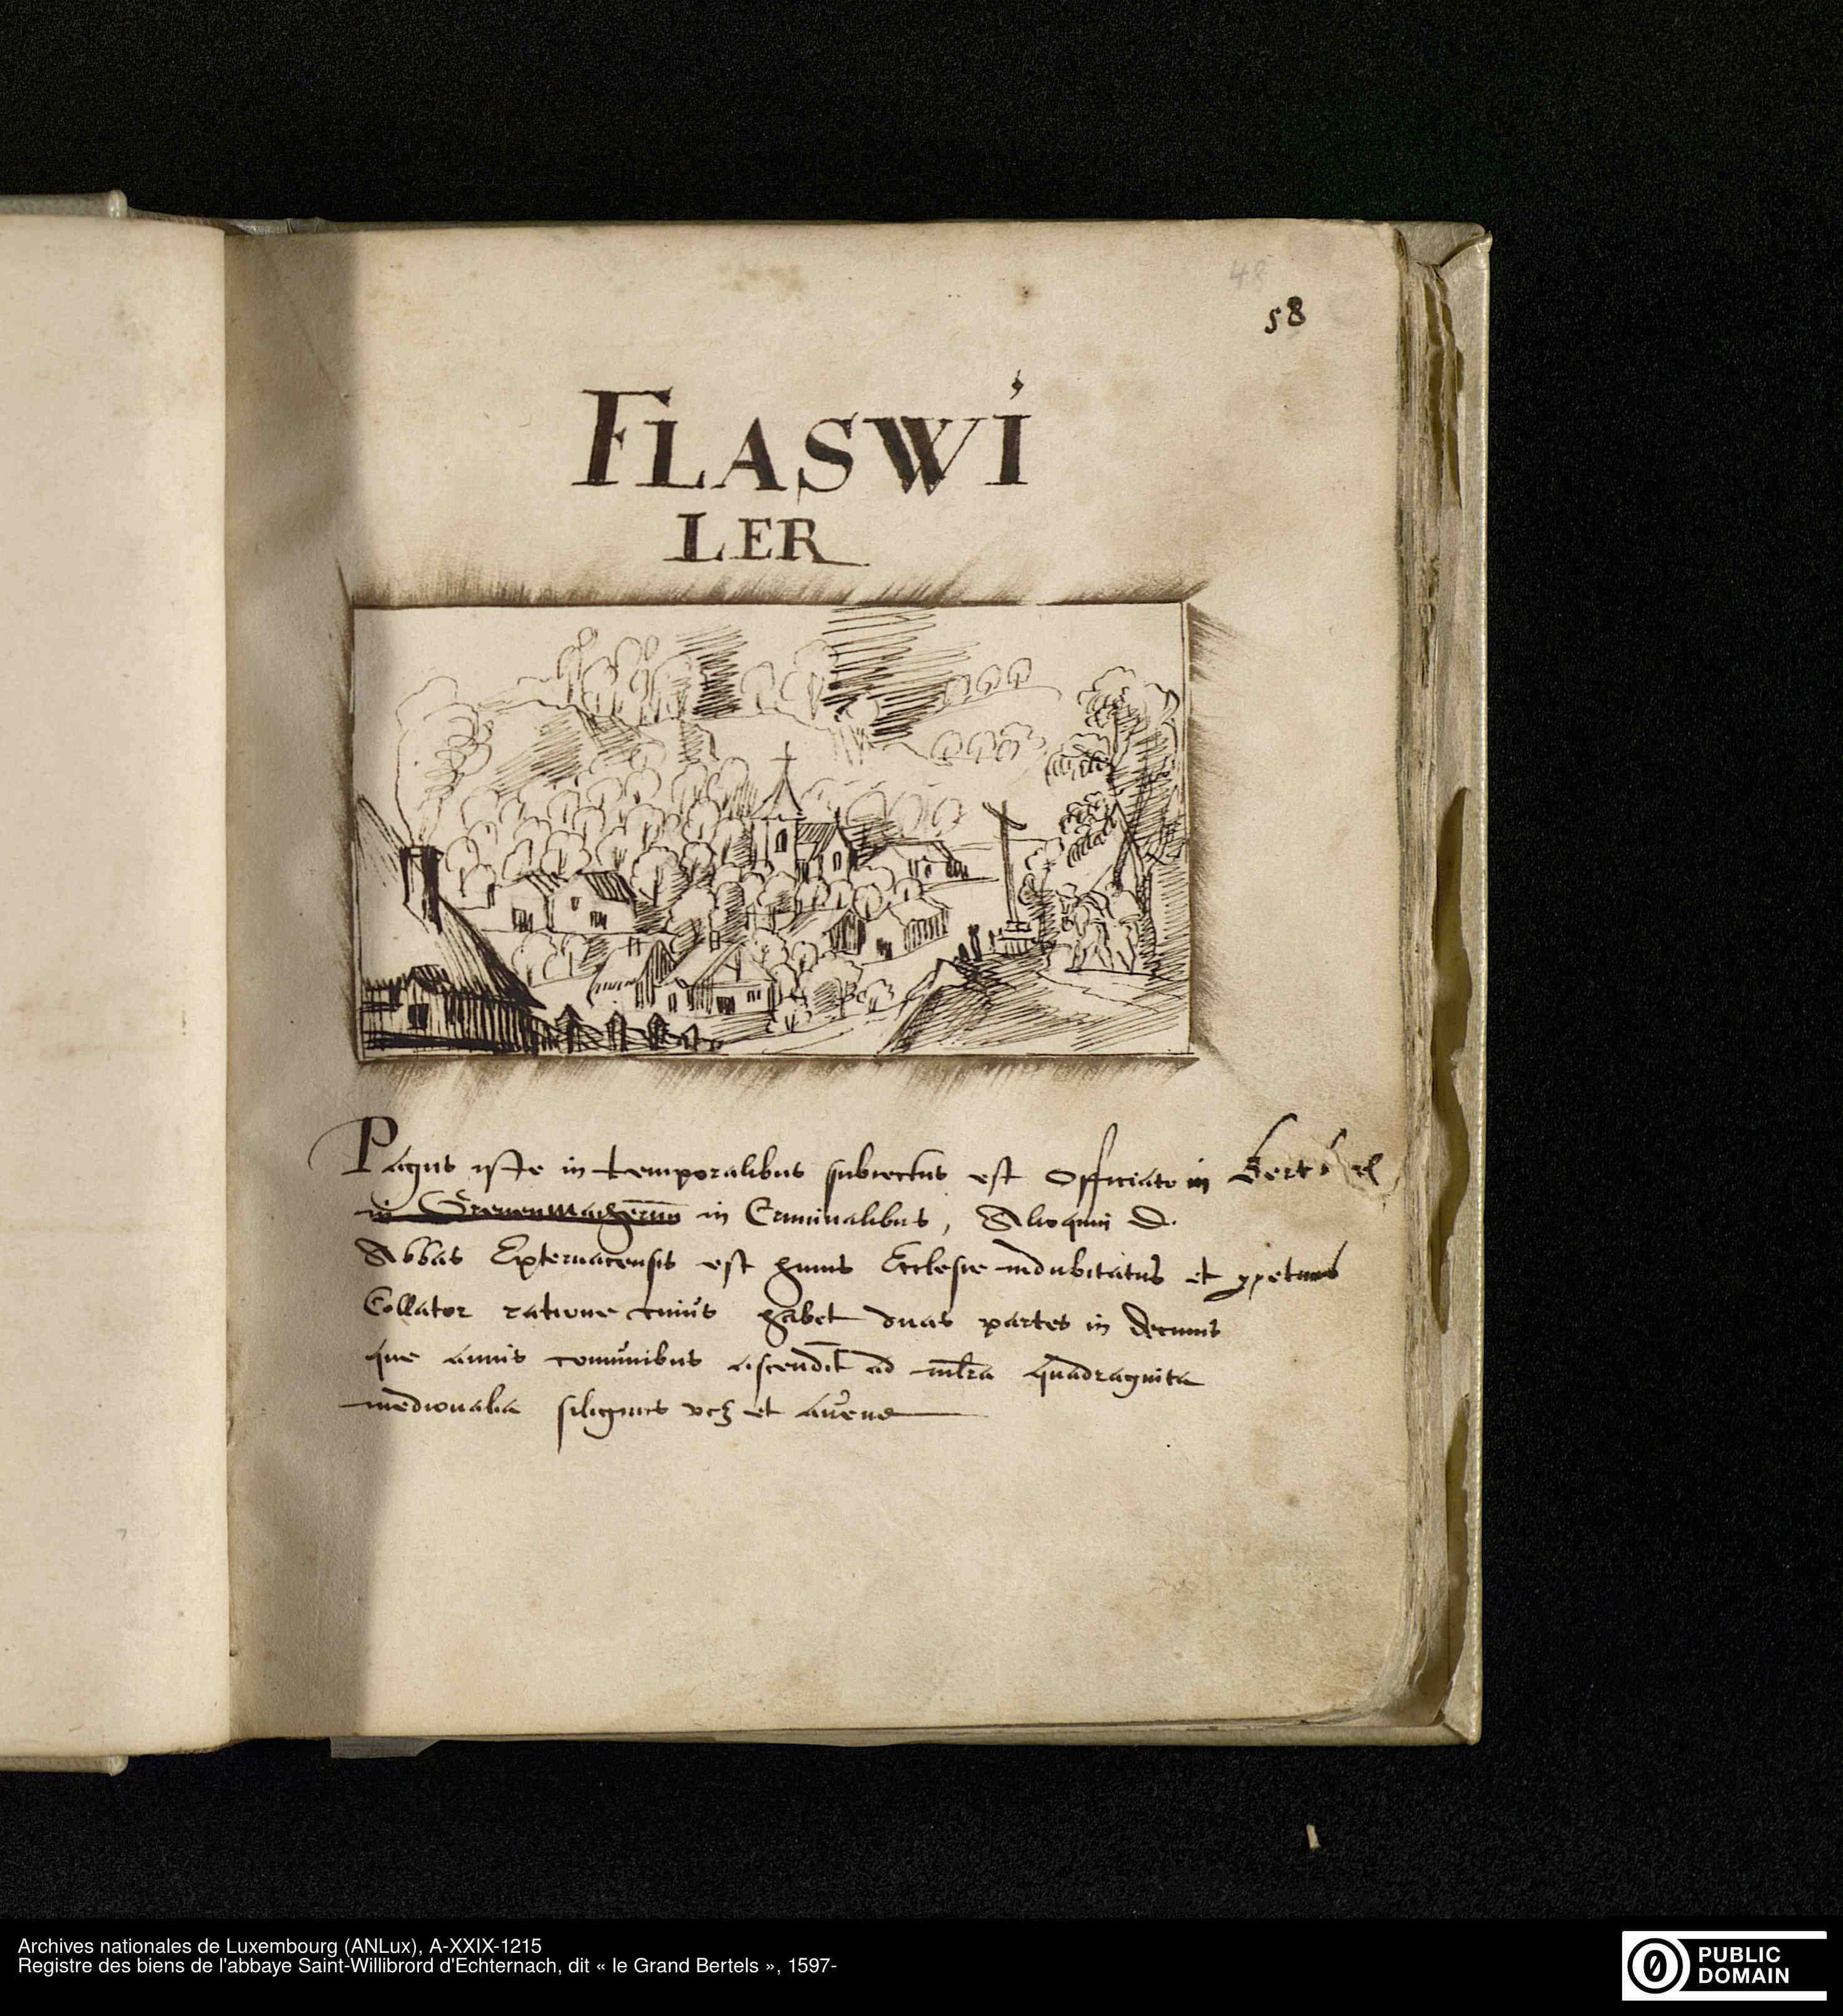 48
58
FLASWI
LER
Pagus iste in temporalibus subiectus est Officiato in
in Grevenmacherun in Criminalibus, Alioquin D.
Abbas Epternacensis est huius Ecclesie indubitatus et ppetuus
Collator ratione cuius habet duas partes in decimis
que annis comunibus ascendūt ad mltra quadraginta
medionalia siliginis vcz et avene
Archives nationales de Luxembourg (ANLux), A-XXIX-1215
Registre des biens de l'abbaye Saint-Willibrord d'Echternach, dit « le Grand Bertels », 1597-
PUBLIC
DOMAIN